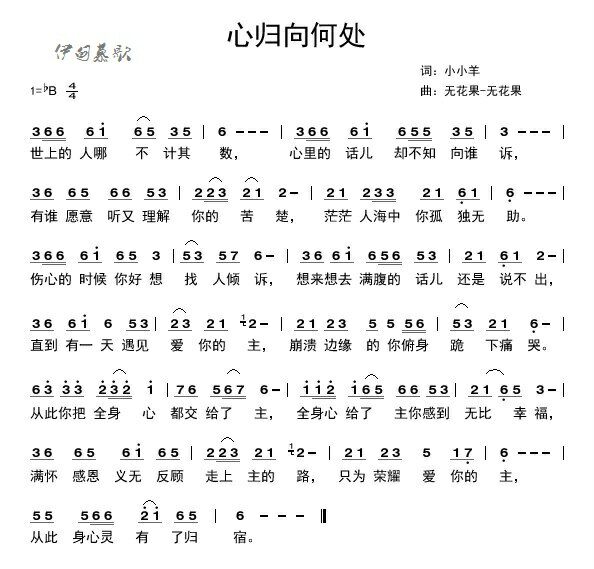 心归向何处
伊甸慕歌
词：小小羊
1=♭B 4/4
曲：无花果-无花果
366 6i 65 35 | 6 - - - | 366 6i 655 35 | 3 - - - |
世上的 人哪 不 计其 数， 心里的 话儿 却不知 向谁 诉，
36 65 66 53 | 223 21 2- | 21 233 21 61 | 6 - - - |
有谁 愿意 听又 理解 你的 苦 楚， 茫茫 人海中 你孤 独无 助。
366 6i 65 3 | 53 57 6- | 36 61 656 53 | 21 61 2- |
伤心的 时候 你好 想 找 人倾 诉， 想来想去 满腹的 话儿 还是 说不 出，
36 6i 6 53 | 23 21 12- | 35 65 5 556 | 53 21 6- |
直到 有一 天 遇见 爱 你的 主， 崩溃 边缘 的 你俯身 跪 下痛 哭。
63 33 232 i | 76 567 6- | ii2 i65 66 53 | 21 65 3- |
从此你把 全身 心 都交 给了 主， 全身心 给了 主你感到 无比 幸福，
36 65 6i 65 | 223 21 12- | 21 23 5 17 | 6 - - - |
满怀 感恩 义无 反顾 走上 主的 路， 只为 荣耀 爱 你的 主，
55 566 2i 65 | 6 - - - ‖
从此 身心灵 有 了归 宿。